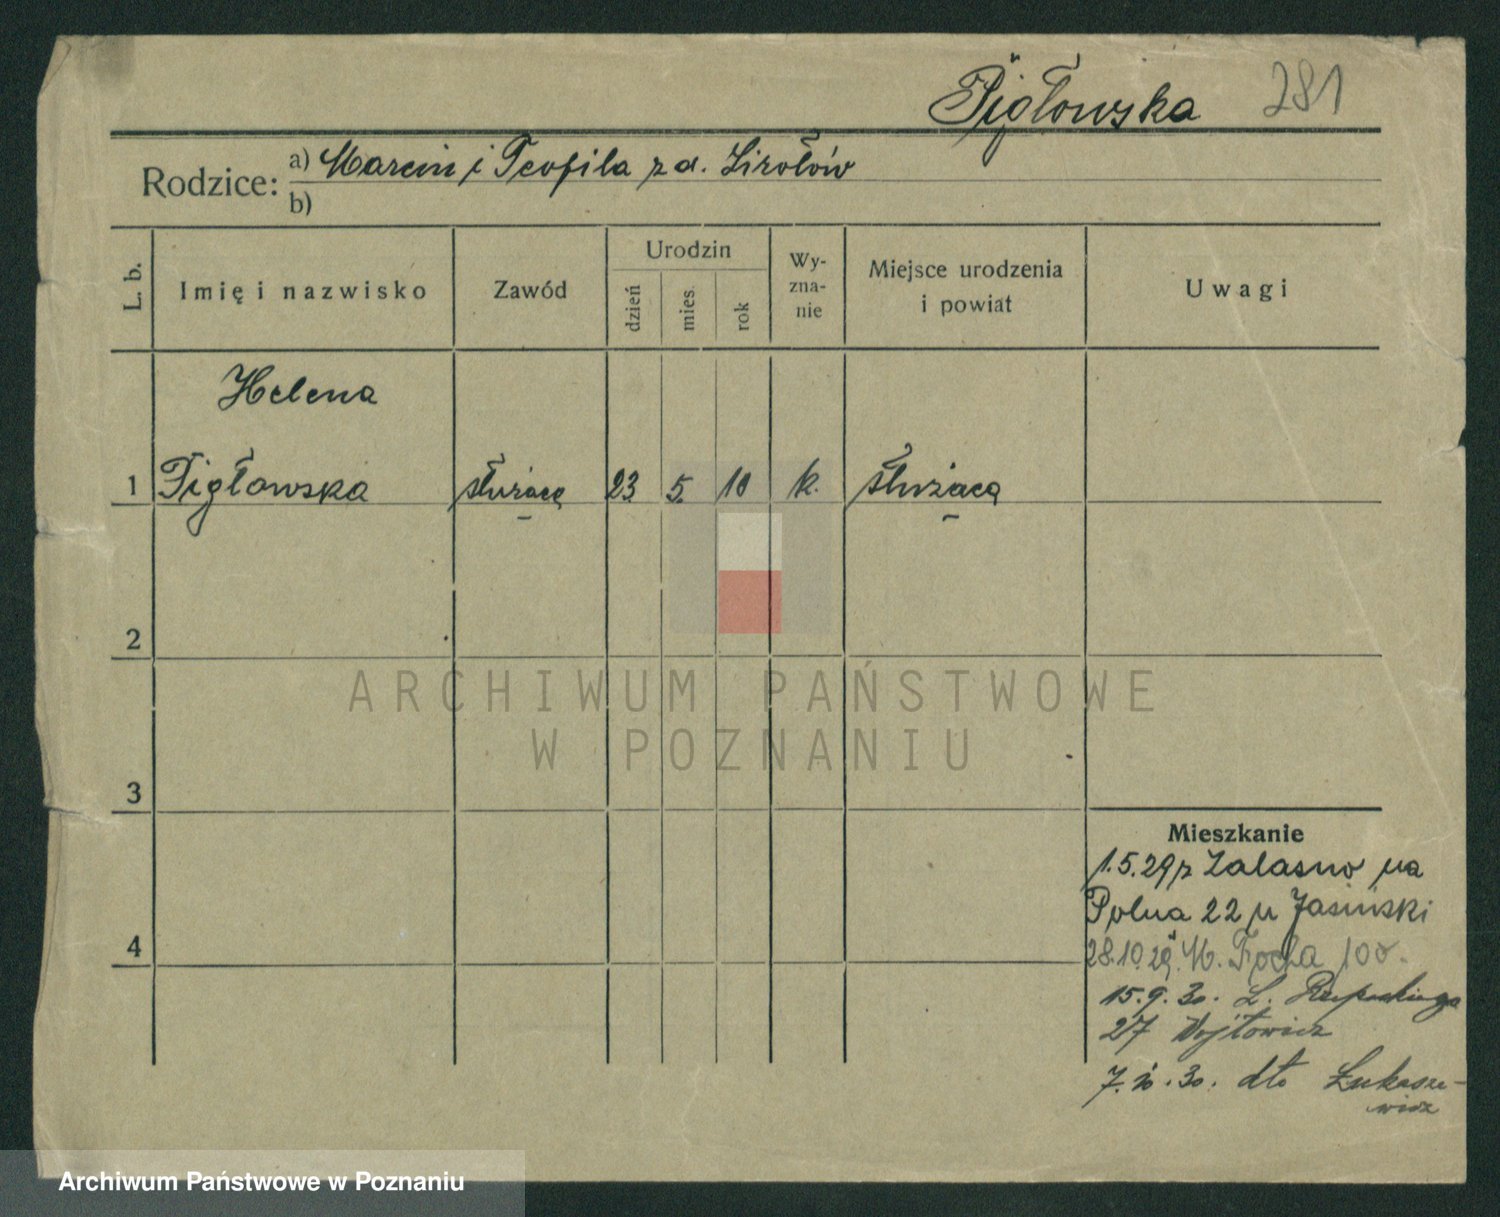 Pigłowska 281
Rodzice: a) Marcin i Teofila z d. Zirołów
b)
L. b. Imię i nazwisko Zawód Urodzin dzień mies. rok Wy-zna-nie Miejsce urodzenia i powiat Uwagi
Helena
1 Pigłowska służąca 23 5. 10 k. służąca
2
ARCHIWUM PAŃSTWOWE
W POZNANIU
3
Mieszkanie
1.5.29 z Zalasno na
Polna 22 u Jasiński
4
28.10.29. M. Focha 100.
15.9.30. L. Rzepeckiego
27 Wojtowicz
7.10.30. dto Łukasze-
wicz
Archiwum Państwowe w Poznaniu